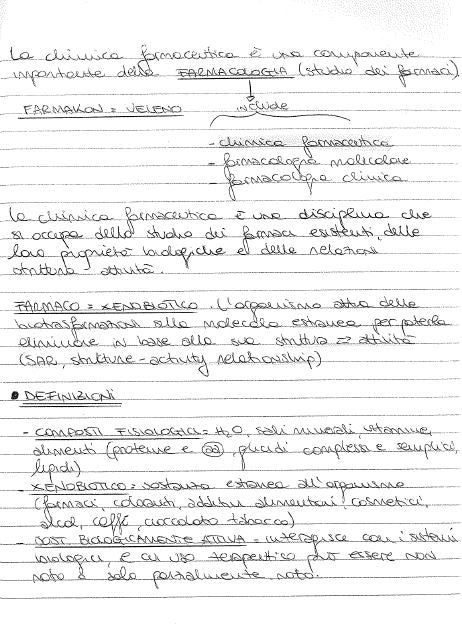 La chimica farmaceutica è una componente
importante della FARMACOLOGIA (studio dei farmaci)
FARMAKON = VELENO include
- chimica farmaceutica
- farmacologia molecolare
- farmacologia clinica
La chimica farmaceutica è una disciplina che
si occupa dello studio dei farmaci esistenti, delle
loro proprietà biologiche e delle relazioni
struttura attività.
FARMACO = XENOBIOTICO. L'organismo attua delle
biotrasformazioni alla molecola estranea per poterla
eliminare in base alla sua struttura ⇒ attività
(SAR, structure-activity relationship)
• DEFINIZIONI
- COMPOSTI FISIOLOGICI = H₂O, sali minerali, vitamine,
alimenti (proteine e aa, glucidi complessi e semplici,
lipidi)
- XENOBIOTICO = sostanza estranea all'organismo
(farmaci, coloranti, additivi alimentari, cosmetici,
alcol, caffè, cioccolato tabacco)
- SOST. BIOLOGICAMENTE ATTIVA = interagisce con i sistemi
biologici, e cui uso terapeutico può essere non
noto o solo parzialmente noto.